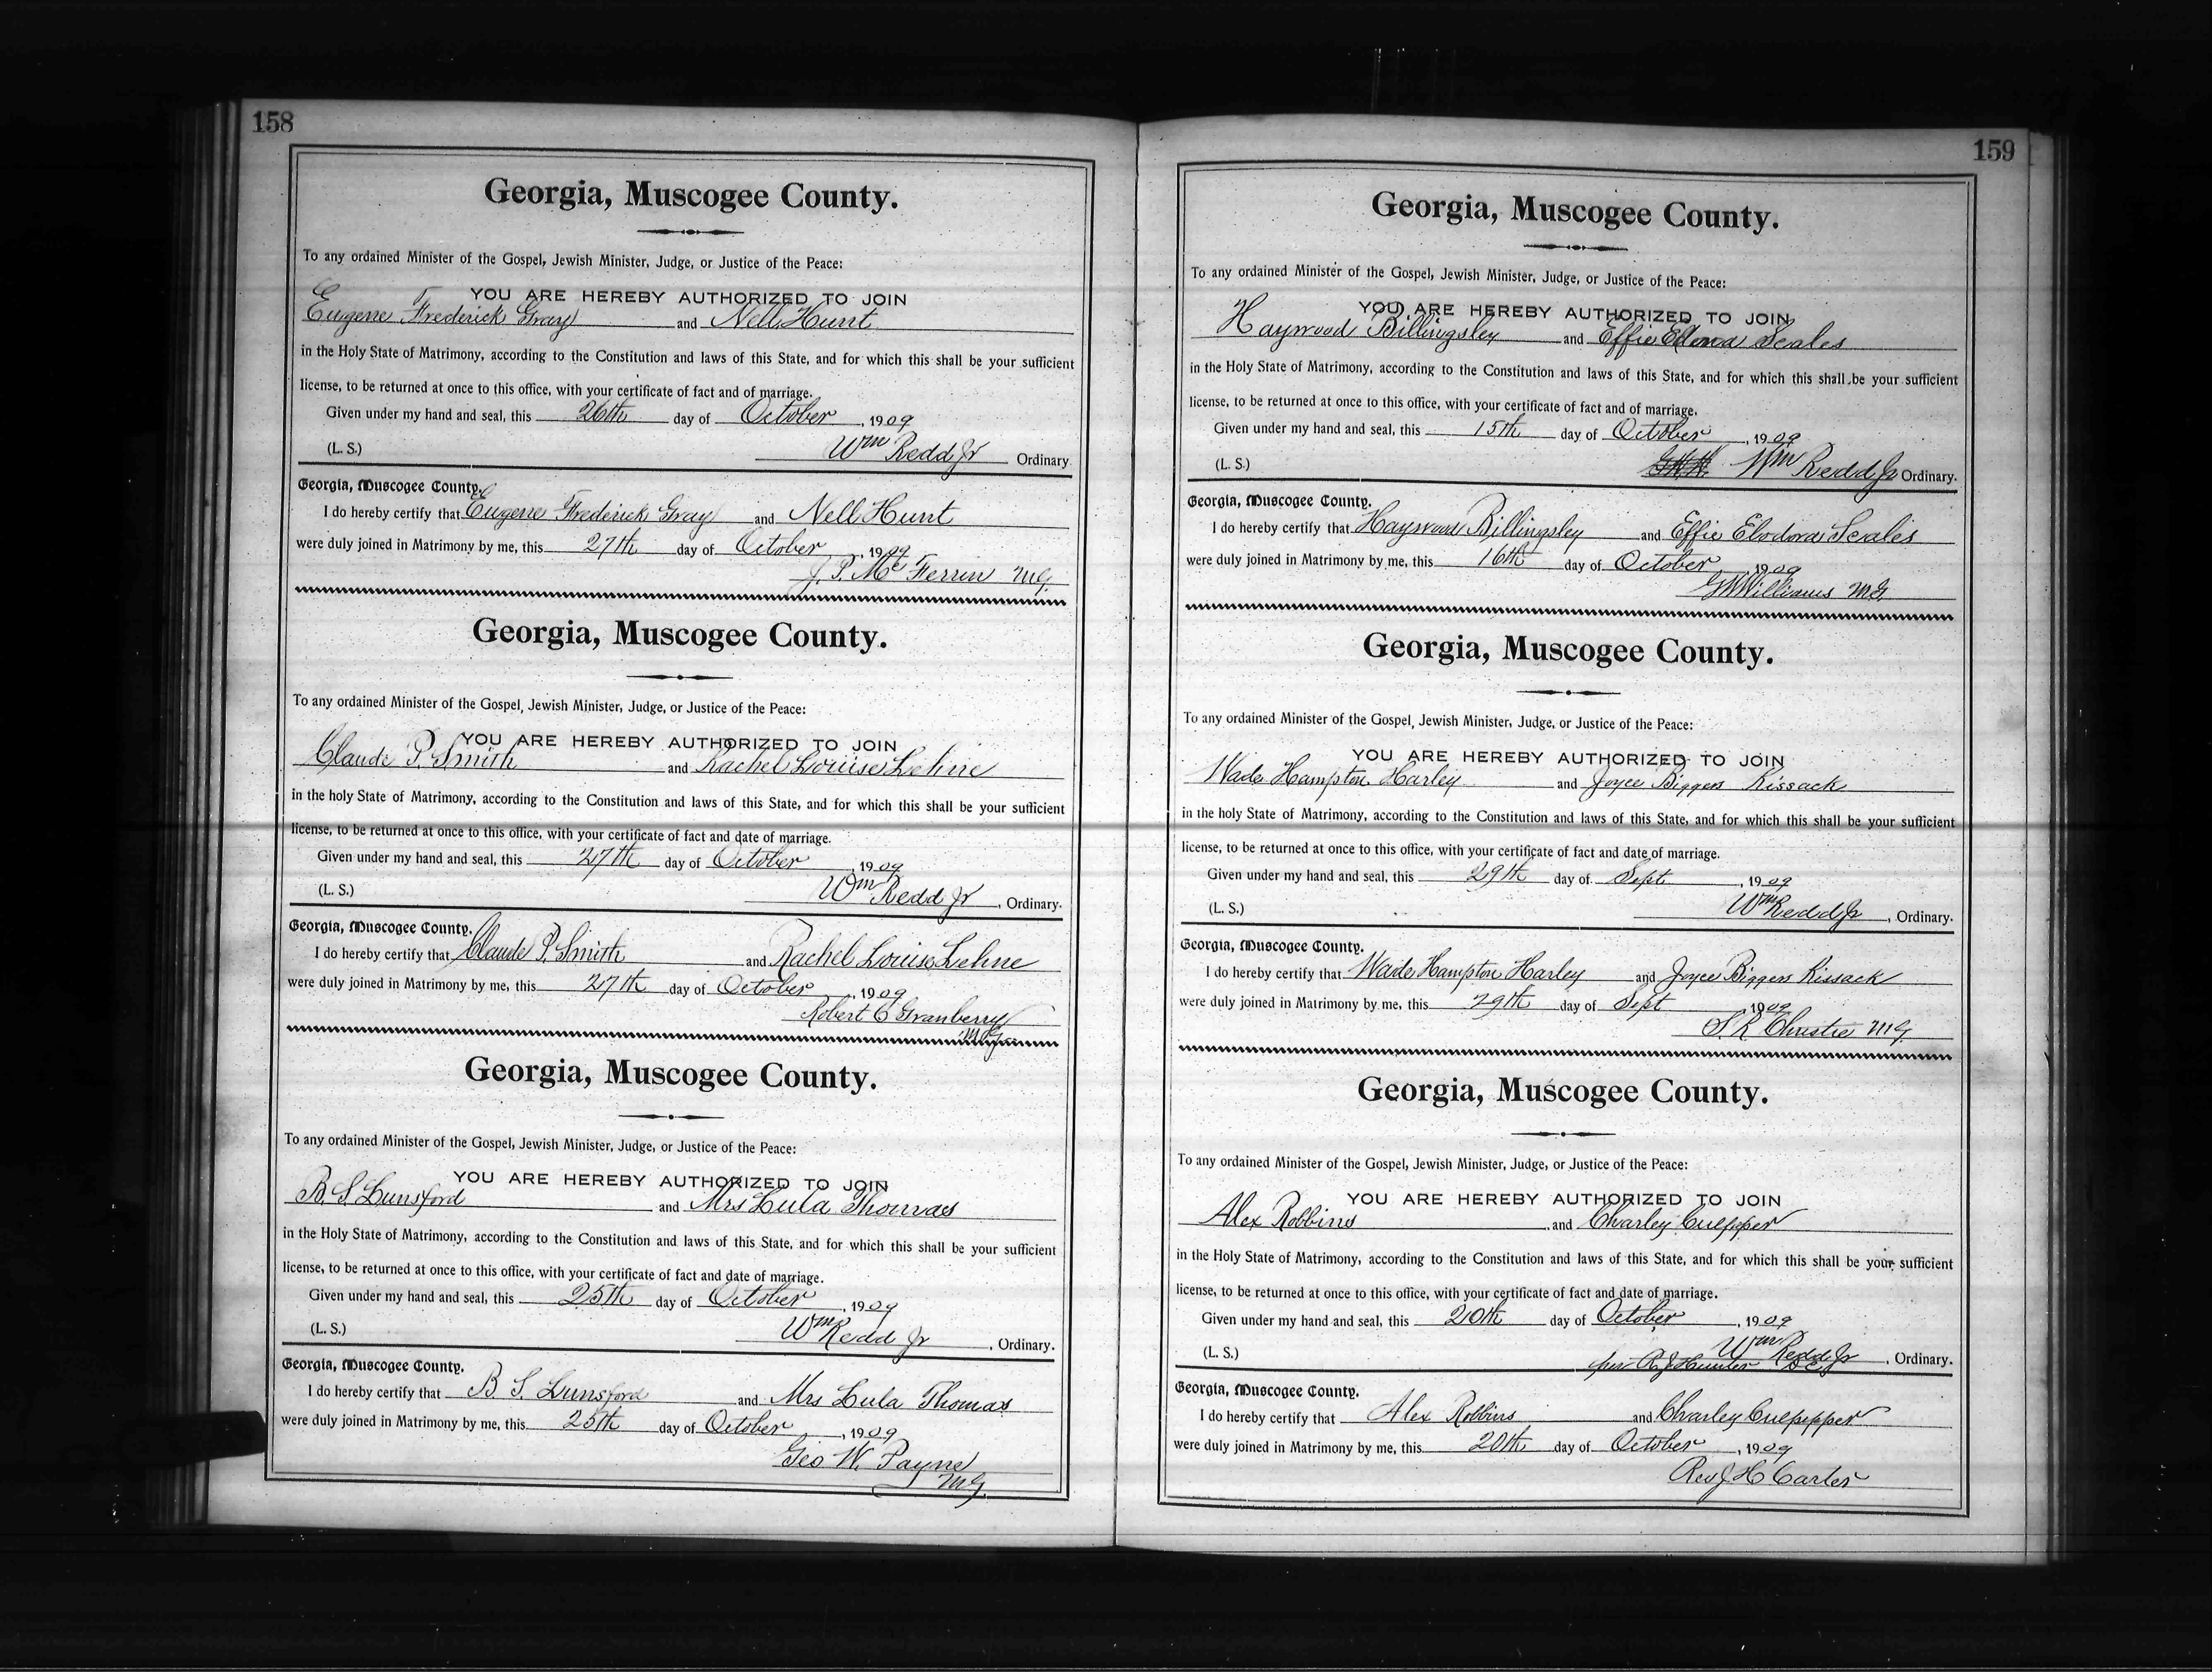 158
Georgia, Muscogee County.
To any ordained Minister of the Gospel, Jewish Minister, Judge, or Justice of the Peace:
YOU ARE HEREBY AUTHORIZED TO JOIN
Eugene Frederick Gray and Nell Hunt
in the Holy State of Matrimony, according to the Constitution and laws of this State, and for which this shall be your sufficient
license, to be returned at once to this office, with your certificate of fact and of marriage.
Given under my hand and seal, this 26th day of October, 1909
(L. S.) Wm Redd Jr Ordinary.
Georgia, Muscogee County.
I do hereby certify that Eugene Frederick Gray and Nell Hunt
were duly joined in Matrimony by me, this 27th day of October, 1909
J. P. McFerrin M.G.
Georgia, Muscogee County.
To any ordained Minister of the Gospel, Jewish Minister, Judge, or Justice of the Peace:
YOU ARE HEREBY AUTHORIZED TO JOIN
Claude P. Smith and Rachel Louise
in the holy State of Matrimony, according to the Constitution and laws of this State, and for which this shall be your sufficient
license, to be returned at once to this office, with your certificate of fact and date of marriage.
Given under my hand and seal, this 27th day of October, 1909
(L. S.) Wm Redd Jr, Ordinary.
Georgia, Muscogee County.
I do hereby certify that Claude P. Smith and Rachel Louise
were duly joined in Matrimony by me, this 27th day of October, 1909
Robert C Granberry
M.G.
Georgia, Muscogee County.
To any ordained Minister of the Gospel, Jewish Minister, Judge, or Justice of the Peace:
YOU ARE HEREBY AUTHORIZED TO JOIN
B. S. Lunsford and Mrs Lula Thomas
in the Holy State of Matrimony, according to the Constitution and laws of this State, and for which this shall be your sufficient
license, to be returned at once to this office, with your certificate of fact and date of marriage.
Given under my hand and seal, this 25th day of October, 1909
(L. S.) Wm Redd Jr, Ordinary.
Georgia, Muscogee County.
I do hereby certify that B. S. Lunsford and Mrs Lula Thomas
were duly joined in Matrimony by me, this 25th day of October, 1909
Geo W. Payne
M.G.
159
Georgia, Muscogee County.
To any ordained Minister of the Gospel, Jewish Minister, Judge, or Justice of the Peace:
YOU ARE HEREBY AUTHORIZED TO JOIN
Haywood Billingsley and Effie Scales
in the Holy State of Matrimony, according to the Constitution and laws of this State, and for which this shall be your sufficient
license, to be returned at once to this office, with your certificate of fact and of marriage.
Given under my hand and seal, this 15th day of October, 1909
(L. S.) Wm Redd Jr Ordinary.
Georgia, Muscogee County.
I do hereby certify that Haywood Billingsley and Effie Elodora Scales
were duly joined in Matrimony by me, this 16th day of October, 1909
Williams M.G.
Georgia, Muscogee County.
To any ordained Minister of the Gospel, Jewish Minister, Judge, or Justice of the Peace:
YOU ARE HEREBY AUTHORIZED TO JOIN
Wade Hampton Harley and Joyce Biggers Kissack
in the holy State of Matrimony, according to the Constitution and laws of this State, and for which this shall be your sufficient
license, to be returned at once to this office, with your certificate of fact and date of marriage.
Given under my hand and seal, this 29th day of Sept, 1909
(L. S.) Wm Redd Jr, Ordinary.
Georgia, Muscogee County.
I do hereby certify that Wade Hampton Harley and Joyce Biggers Kissack
were duly joined in Matrimony by me, this 29th day of Sept 1909
S. R. Christie M.G.
Georgia, Muscogee County.
To any ordained Minister of the Gospel, Jewish Minister, Judge, or Justice of the Peace:
YOU ARE HEREBY AUTHORIZED TO JOIN
Alex Robbins and Charley Culpepper
in the Holy State of Matrimony, according to the Constitution and laws of this State, and for which this shall be your sufficient
license, to be returned at once to this office, with your certificate of fact and date of marriage.
Given under my hand and seal, this 20th day of October, 1909
(L. S.) Wm Redd Jr, Ordinary.
per R. J. Hunter
Georgia, Muscogee County.
I do hereby certify that Alex Robbins and Charley Culpepper
were duly joined in Matrimony by me, this 20th day of October, 1909
Rev J H Carter